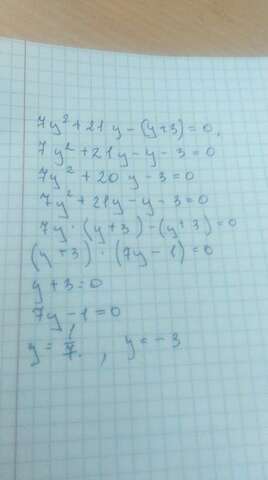 7y² + 21y - (y+3) = 0,
7y² + 21y - y - 3 = 0
7y² + 20y - 3 = 0
7y² + 21y - y - 3 = 0
7y · (y+3) - (y+3) = 0
(y+3) · (7y - 1) = 0
y + 3 = 0
7y - 1 = 0
y = 1/7. , y = -3